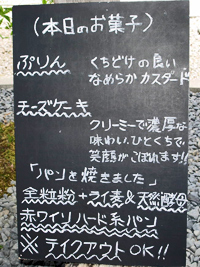 (本日のお菓子)
ぷりん
くちどけの良い
なめらかカスタード
チーズケーキ
クリーミーで濃厚な
味わい。ひとくちで、
笑顔がこぼれます!!
「パンを焼きました」
全粒粉+ライ麦&天然酵母
赤ワインハード系パン
※ テイクアウトOK!!